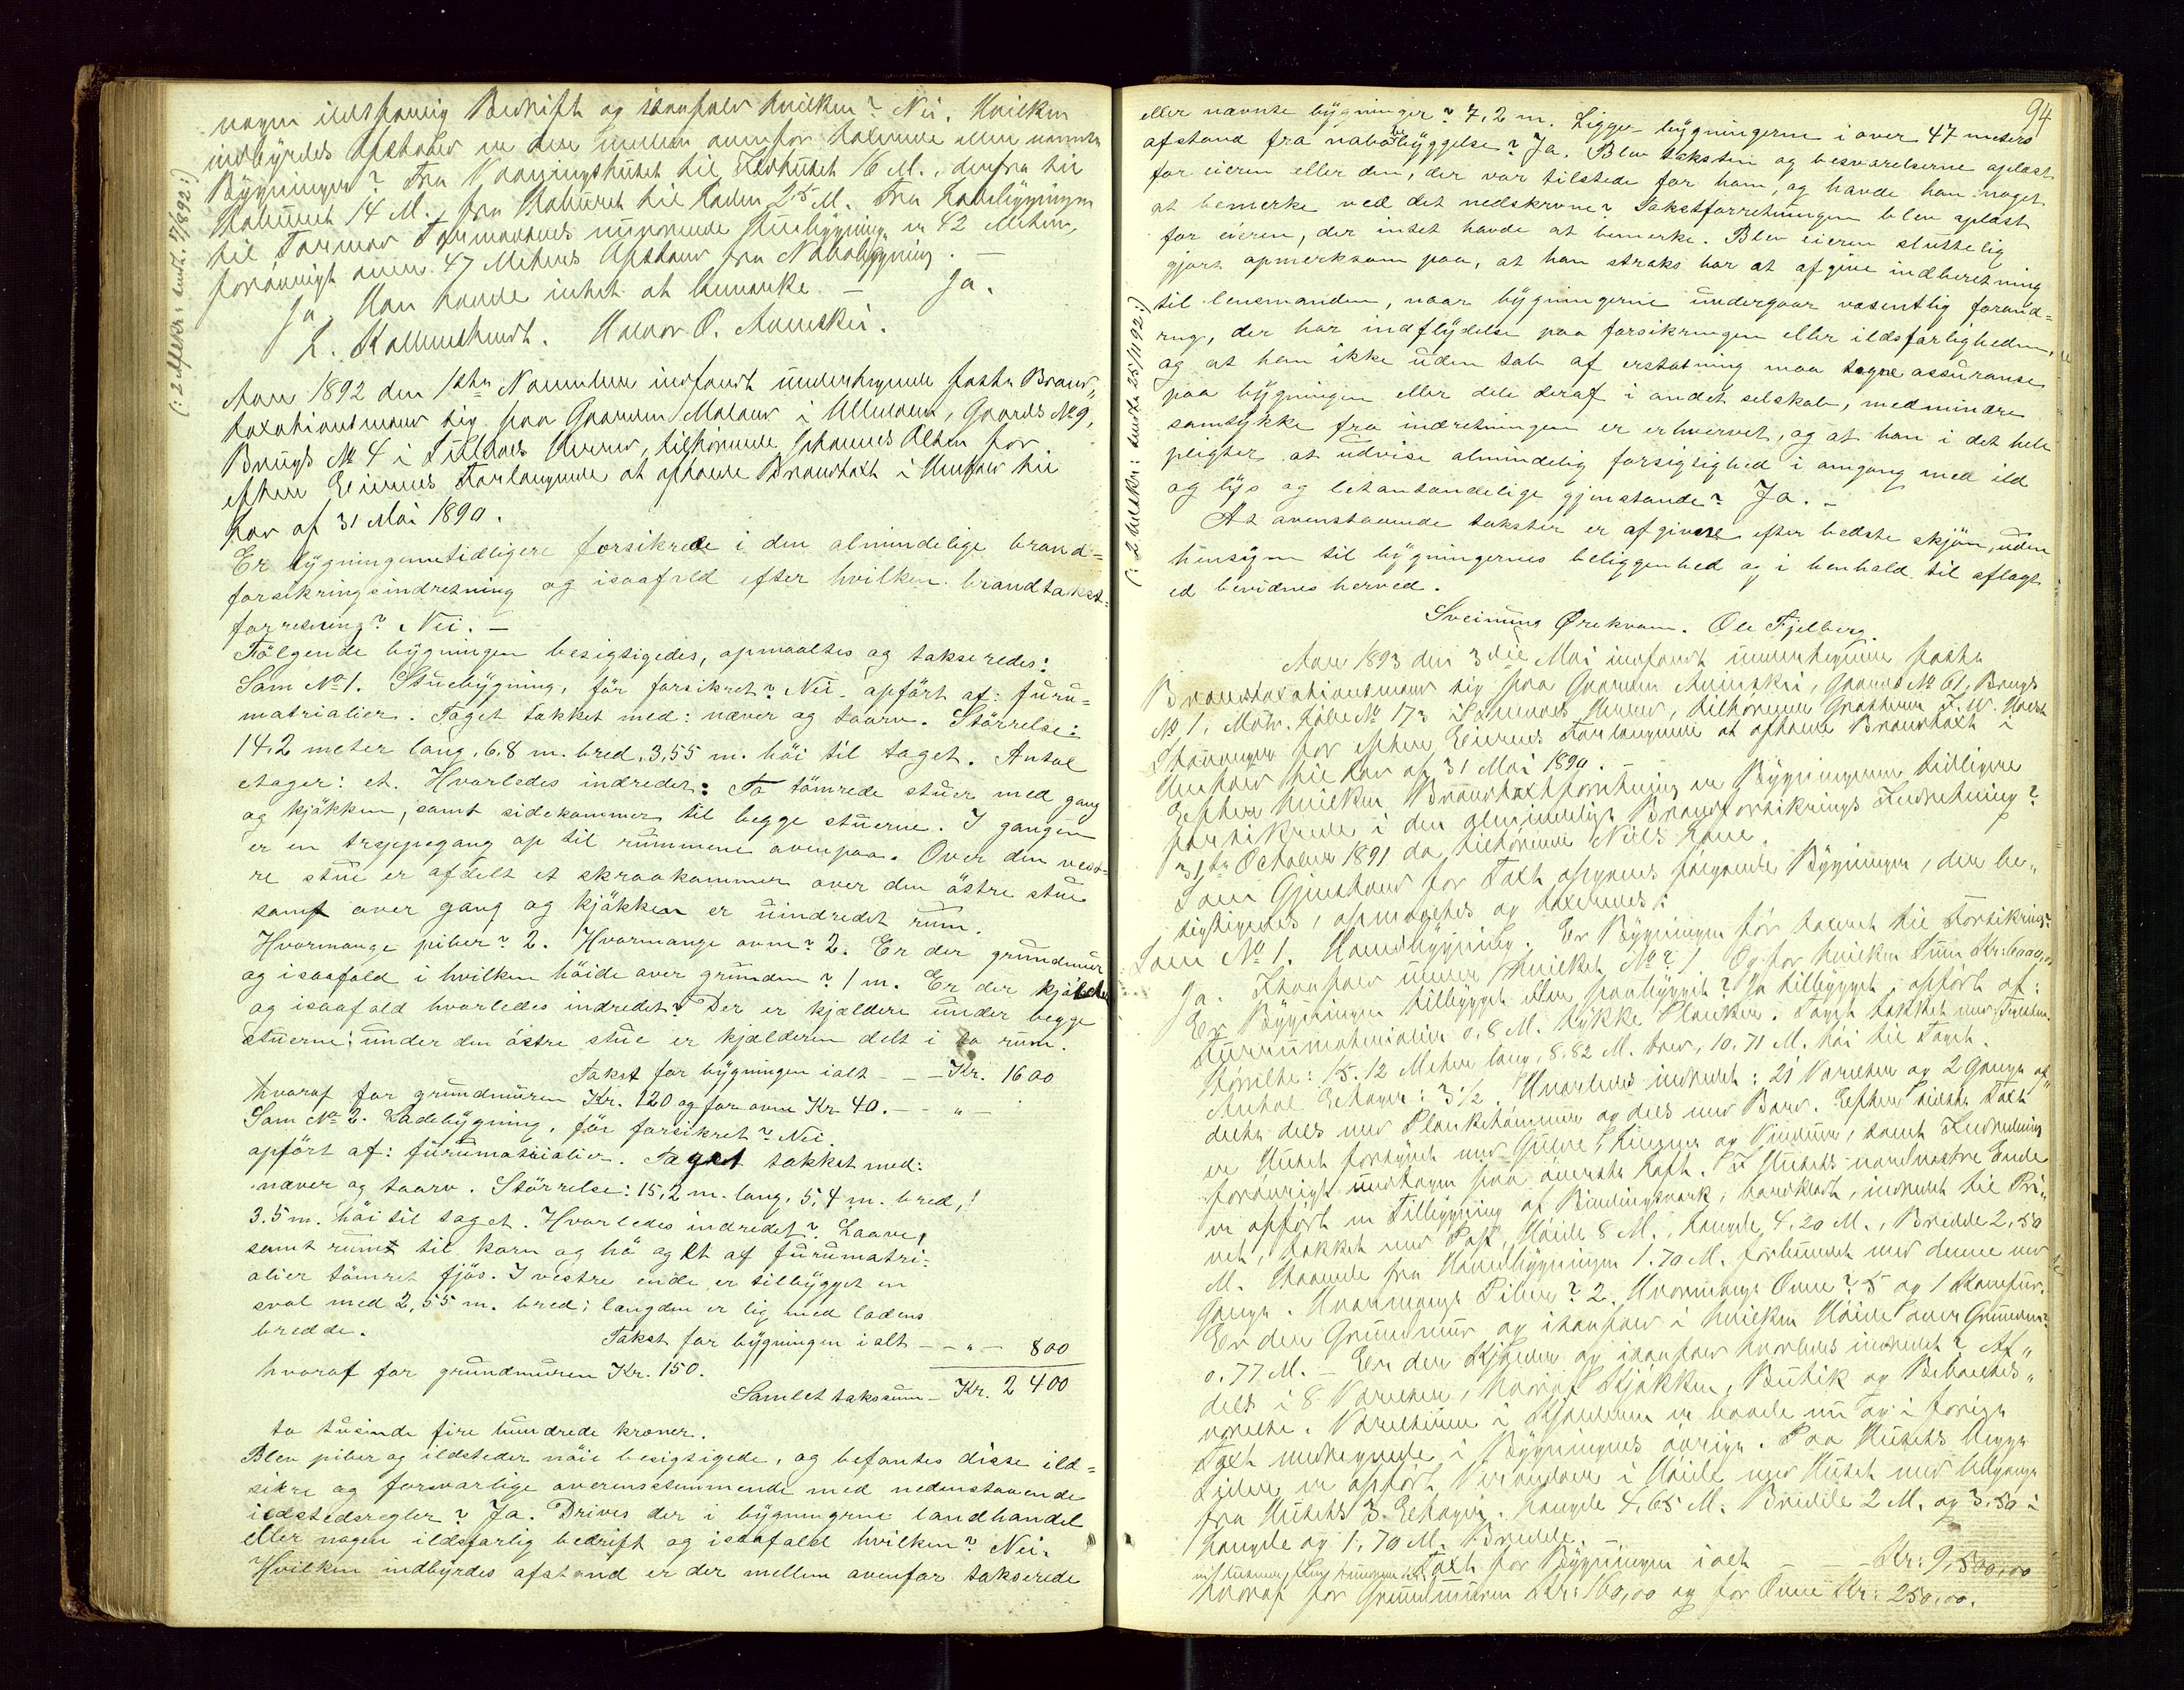 nogen ildsfarlig Bedrift og isaafald hvilken? Nei. Hvilken
indbyrdes Afstand er der mellem ovenfor taxerede eller nævnte
Bygninger? Fra Vaaningshuset til Ildhuset 16 M., derfra til
Stabburet 14 M., fra Stabburet til Laden 25 M. Fra Ladebygningen
til Formand Formandens Stuebygning er 42 Meter,
forøvrigt over 47 Meters Afstand fra Nabobygning. —
Ja. Han havde intet at bemærke — Ja.
Halvor O.
(: 2 Afskr: sendt /1892:)
Aar 1892 den 12te November indfandt undertegnede faste Brand-
taxationsmænd sig paa Gaarden Maland i, Gaards No 9,
Brugs No 4 i Herred, tilhørende Johannes Olsen for
efter Eierens Forlangende at afholde Brandtaxt i Henhold til
Lov af 31 Mai 1890.
Er bygningerne tidligere forsikrede i den almindelige brand=
forsikringsindretning og isaafald efter hvilken brandtakst=
forretning? Nei. —
Følgende bygninger besigtigedes, opmaaltes og takseredes:
Som No 1. Stuebygning, før forsikret? Nei. opført af: furu=
matrialier. Taget takket med: næver og taarv. Størrelse:
14,2 meter lang, 6,8 m. bred, 3,55 m. høi til taget. Antal
etager: et. Hvorledes indredet: To tømrede stuer med gang
og kjøkken, samt sidekammer til begge stuerne. I gangen
er en trappegang op til rummene ovenpaa. Over den vest=
re stue er afdelt et skraakammer over den østre stue
samt over gang og kjøkken er uindredet rum.
Hvormange piber? 2. Hvormange ovne? 2. Er der grundmur
og isaafald i hvilken høide over grunden? 1 m. Er der kjælder
og isaafald hvorledes indredet? Der er kjældere under begge
stuerne: under den østre stue er kjælderen delt i to rum.
Takst for bygningen ialt - - - Kr. 1600
hvoraf for grundmuren Kr. 120 og for ovne Kr 40. - - " -
Som No 2. Ladebygning, før forsikret? Nei.
opført af: furumatrialier. Taget takket med:
næver og taarv. Størrelse: 15,2 m. lang, 5,4 m. bred,
3.5 m. høi til taget. Hvorledes indredet? Laave,
samt rum til korn og hø og et af furumatri-
alier tømret fjøs. I vestre ende er tilbygget en
sval med 2,55 m. bred; længden er lig med ladens
bredde.
Takst for bygningen i alt - - " - 800
hvoraf for grundmuren Kr. 150.
Samlet takssum - Kr. 2400
to tusinde fire hundrede kroner.
Blev piber og ildsteder nøie besigtigede, og befantes disse ild=
sikre og forsvarlige overensstemmende med nedenstaaende
ildstedsregler? Ja. Drives der i bygningerne landhandel
eller nogen ildsfarlig bedrift og isaafald hvilken? Nei.
Hvilken indbyrdes afstand er der mellem ovenfor takserede
94
eller nævnte bygninger? 7,2 m. Ligger bygningerne i over 47 meters
afstand fra nabobebyggelse? Ja. Blev taksten og besvarelserne oplæst
for eieren eller den, der var tilstede for ham, og havde han noget
at bemerke ved det nedskrevne? Takstforretningen blev oplæst
for eieren, der intet havde at bemerke. Blev eieren sluttelig
gjort opmerksom paa, at han straks har at afgive indberetning
til lensmanden, naar bygningerne undergaar væsentlig forand=
ring, der har indflydelse paa forsikringen eller ildsfarligheden,
og at han ikke uden tab af erstatning maa tegne assuranse
paa bygningen eller dele deraf i andet selskab, medmindre
samtykke fra indretningen er erhvervet, og at han i det hele
pligter at udvise almindelig forsigtighed i omgang med ild
og lys og letantændelige gjenstande? Ja. -
At ovenstaaende takster er afgivne efter bedste skjøn, uden
hensyn til bygningernes beliggenhed og i henhold til aflagt
ed bevidnes herved.
Sveinung Ørekvam. Ole Fjelberg.
(: 2 Afskr: sendt 25/11 92:)
Aar 1893 den 3die Mai indfandt undertegnede faste
Brandtaxationsmænd sig paa Gaarden, Gaards No 61, Brugs
No 1, Matr. Løbe No 173 i Herred, tilhørende
for efter Eierens Forlangende at afholde Brandtaxt i
Henhold til Lov af 31 Mai 1890.
Efter hvilken Brandtaxtforretning er Bygningerne tidligere
forsikrede i den almindelige Brandforsikrings Indretning?
31te October 1891 da tilhørende Niels
Som Gjenstand for Taxt opgaves følgende Bygninger, der be-
sigtigedes, opmaaltes og taxeredes:
Som No 1. Hovedbygning. Er Bygningen før taxeret til Forsikring?
Ja. Isaafald under hvilket No? 1 Og for hvilken Sum Kr: 6000,00
Er Bygningen tilbygget eller paabygget? Ja tilbygget, opført af:
Furumaterialier 0,8 M. tykke Planker. Taget takket med
Størrelse: 15.12 Meter lang, 8.82 M. bred, 10.71 M. høi til Taget.
Antal Etager: 3 1/2. Hvorledes indredet: 21 Værelser og 2 Gange af-
delte dels med Planketømmer og dels med Bord. Efter sidste Taxt
er Huset forsynet med Gulve, og Vinduer, samt Indredning
forøvrigt undtagen paa øverste Loft. I Husets nordvestre Ende
er opført en Tilbygning af Bindingsværk, bordklædt, indredet til Pri-
vet, takket med Pap, Høide 8 M., Længde 4.20 M., Bredde 2,50
M. Staaende fra Hovedbygningen 1.70 M. forbundet med denne ved
Gange. Hvormange Piber? 2. Hvormange Ovne? 5 og 1 Komfur.
Er der Grundmur og isaafald i hvilken Høide over Grunden?
0.77 M. - Er der Kjælder og isaafald hvorledes indredet? Af-
delt i 8 Værelser, hvoraf Kjøkken, Butik og Beboelses-
værelse. Værelserne i Kjælderen er baade nu og i forrige
Taxt medregnede i Bygningens øvrige. Paa Husets begge
Sider er opført Verandaer i Høide med Huset med Udgange
fra Husets 3 Etager. Længde 4.65 M. Bredde 2 M. og 3,50 i
Længde og 1,70 M. Bredde.
Taxt for Bygningen ialt - - - Kr: 9,500,00
hvoraf for Grundmuren Kr: 160,00 og for Ovne Kr: 250,00.